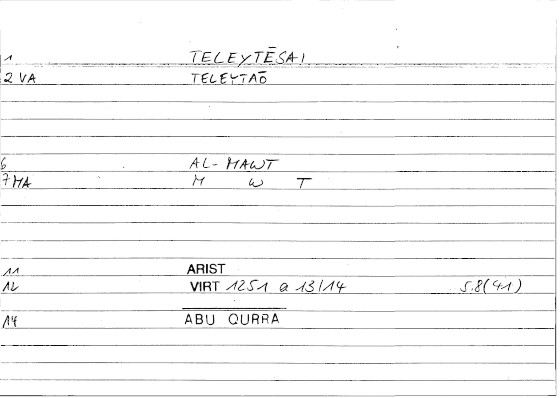 1 TELEYTĒSAI
2 VA TELEYTAŌ
6 AL-MAWT
7 MA M W T
11 ARIST
12 VIRT 1251 a 13/14 5.8(41)
14 ABU QURRA